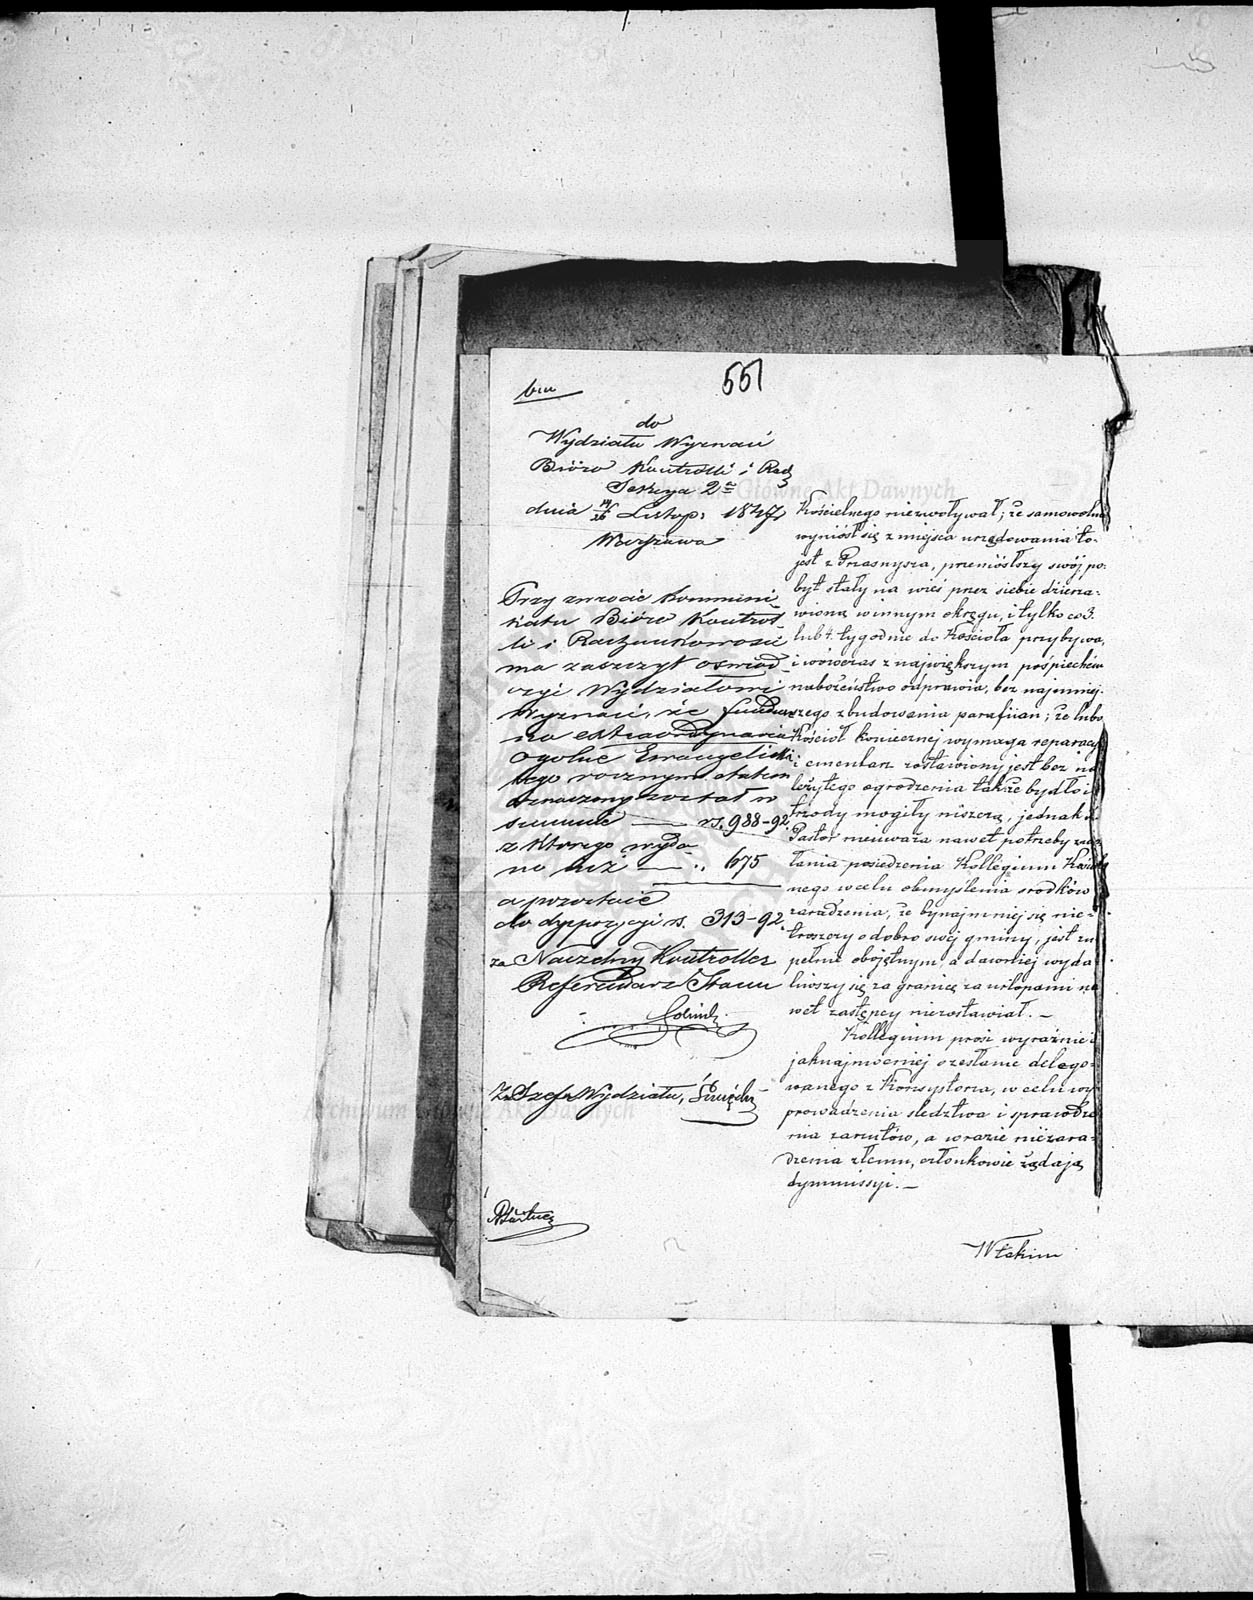 551
do
Wydziału Wyznań
Bióro Kontrolli i Rach
Sekcya 2ª
dnia 14/26 Listop: 1847
Warszawa
Przy zwrocie kommuni-
katu Bióro Kontrol-
li i Rachunkowości
ma zaszczyt oświad-
czyć Wydziałowi
Wyznań, że fundusz
na extraordynaria
ogólne Ewangelickie
tego rocznym etatem
oznaczony został w
summie — rs. 988-92.
z którego wyda-
no już — „ 675
a pozostaie
do dyspozycyi rs. 313-92.
za Naczelny Kontroller
Referendarz Stanu
Za Szefa Wydziału,
Kościelnego niezwoływał; że samowolnie
wyniósł się z miejsca urzędowania to-
jest z Przasnysza, przeniósłszy swój po-
byt stały na wieś przez siebie dzierża-
wioną w innym okręgu, i tylko co 3.
lub 4. tygodnie do Kościoła przybywa,
i wówczas z największym pośpiechem
nabożeństwo odprawia, bez najmniej-
szego zbudowania parafiian; że lubo
Kościół koniecznej wymaga reparacyi
i cmentarz zostawiony jest bez na-
leżytego ogrodzenia tak że bydło i
trzody mogiły niszczą, jednak
Pastor nieuważa nawet potrzeby zwo-
łania posiedzenia Kollegium Kościel-
nego w celu obmyślenia środków
zaradzenia, że bynajmniej się nie-
troszczy o dobro swéj gminy, jest zu-
pełnie obojętnym, a dawniej wyda-
liwszy się za granicę za urlopami na-
wet zastępcy niezostawiał. —
Kollegium prosi wyraźnie i
jaknajmocniej o zesłanie delego-
wanego z Konsystorza, w celu wy-
prowadzenia śledztwa i sprawdze-
nia zarzutów, a w razie niezara-
dzenia złemu, członkowie żądają
dymmissyi. —
W takim